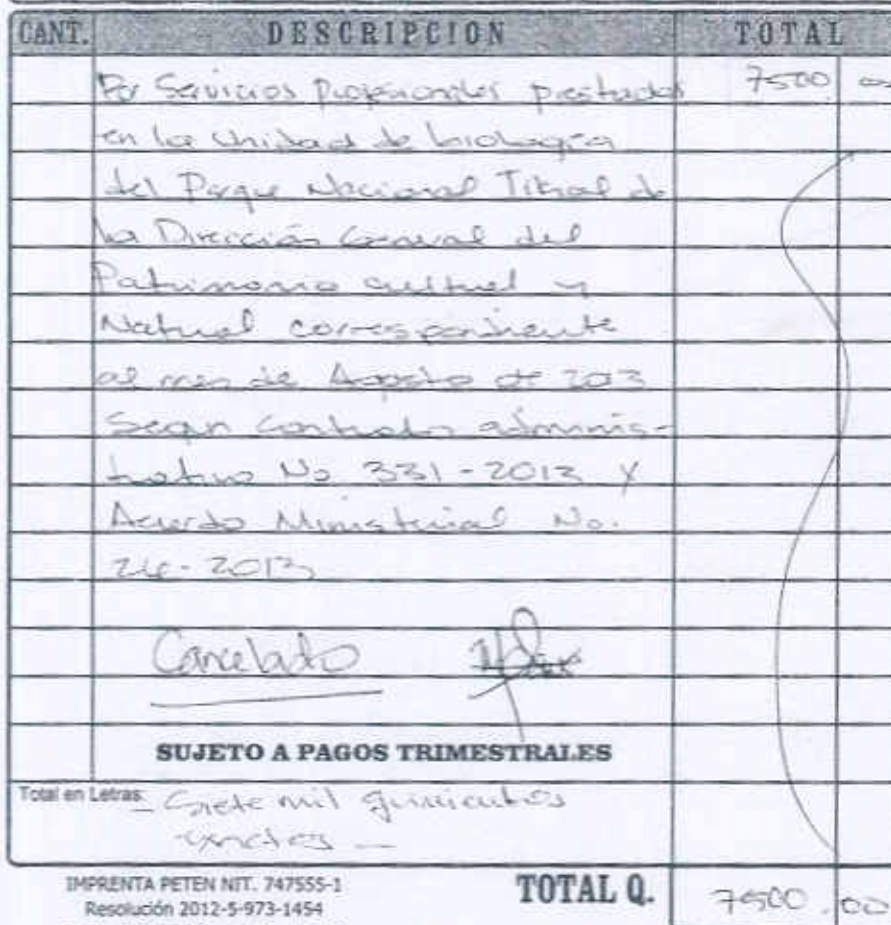 CANT. DESCRIPCION TOTAL
Por Servicios Profesionales prestados 7500 00
en la Unidad de biología
del Parque Nacional Tikal de
la Dirección General del
Patrimonio cultural y
Natural correspondiente
al mes de Agosto de 2013
Segun Contrato adminis-
trativo No 331-2013 y
Acuerdo Ministerial No.
-2013
Cancelado
SUJETO A PAGOS TRIMESTRALES
Total en Letras: - Siete mil quinientos
exactos -
IMPRENTA PETEN NIT. 747555-1 TOTAL Q. 7500.00
Resolución 2012-5-973-1454